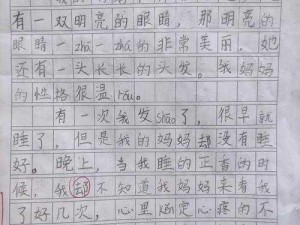 有一双明亮的眼睛，那明亮的
眼睛一zhá一zhá的非常美丽。她
还有一头长长的头发。我妈妈
的性格很温róu。
有一次我发shāo了，很早就
睡了，但是我的妈妈却没有睡
好。晚上，当我睡的正香的时
候，我却不知道我妈妈来看我
了好几次，心里还定心疼的不